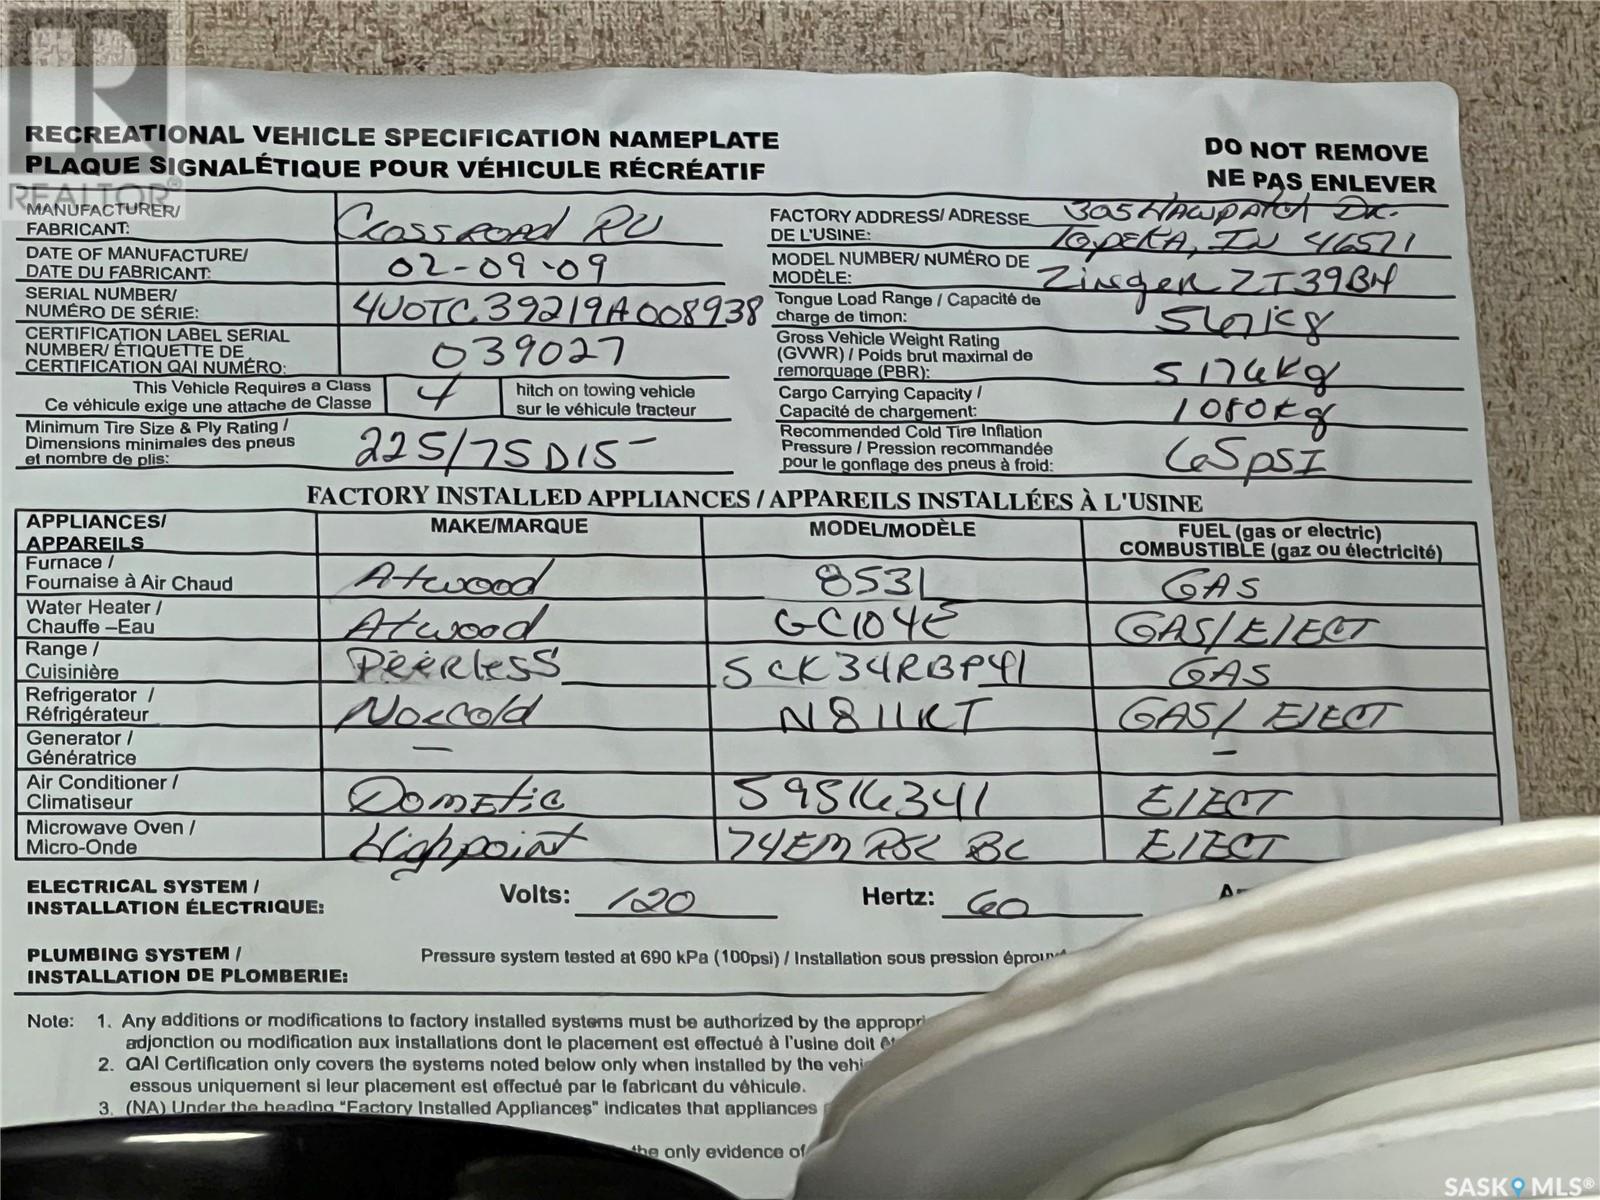 RECREATIONAL VEHICLE SPECIFICATION NAMEPLATE
PLAQUE SIGNALÉTIQUE POUR VÉHICULE RÉCRÉATIF
DO NOT REMOVE
NE PAS ENLEVER
REALTOR®
MANUFACTURER/
FABRICANT:
CROSSROAD RV
DATE OF MANUFACTURE/
DATE DU FABRICANT:
02-09-09
SERIAL NUMBER/
NUMÉRO DE SÉRIE:
4U0TC39219A008938
CERTIFICATION LABEL SERIAL
NUMBER/ ÉTIQUETTE DE
CERTIFICATION QAI NUMÉRO:
039027
This Vehicle Requires a Class
Ce véhicule exige une attache de Classe
4
hitch on towing vehicle
sur le véhicule tracteur
Minimum Tire Size & Ply Rating /
Dimensions minimales des pneus
et nombre de plis:
225/75D15
FACTORY ADDRESS/ ADRESSE
DE L'USINE:
305 HAWPATCH DR.
TOPEKA, IN 46571
MODEL NUMBER/ NUMÉRO DE
MODÈLE:
Zinger ZT39BH
Tongue Load Range / Capacité de
charge de timon:
567kg
Gross Vehicle Weight Rating
(GVWR) / Poids brut maximal de
remorquage (PBR):
5176kg
Cargo Carrying Capacity /
Capacité de chargement:
1080kg
Recommended Cold Tire Inflation
Pressure / Pression recommandée
pour le gonflage des pneus à froid:
65PSI
FACTORY INSTALLED APPLIANCES / APPAREILS INSTALLÉES À L'USINE
APPLIANCES/
APPAREILS
MAKE/MARQUE
MODEL/MODÈLE
FUEL (gas or electric)
COMBUSTIBLE (gaz ou électricité)
Furnace /
Fournaise à Air Chaud
Atwood
8531
GAS
Water Heater /
Chauffe –Eau
Atwood
GC104E
GAS/ElECT
Range /
Cuisinière
PEERLESS
SCK34RBP41
GAS
Refrigerator /
Réfrigérateur
Norcold
N811RT
GAS/ ElECT
Generator /
Génératrice
—
–
Air Conditioner /
Climatiseur
Dometic
59516341
ElECT
Microwave Oven /
Micro-Onde
Highpoint
ElECT
ELECTRICAL SYSTEM /
INSTALLATION ÉLECTRIQUE:
Volts: 120
Hertz: 60
PLUMBING SYSTEM /
INSTALLATION DE PLOMBERIE:
Pressure system tested at 690 kPa (100psi) / Installation sous pression éprou
Note: 1. Any additions or modifications to factory installed systems must be authorized by the appropri
adjonction ou modification aux installations dont le placement est effectué à l'usine doit
2. QAI Certification only covers the systems noted below only when installed by the vehi
essous uniquement si leur placement est effectué par le fabricant du véhicule.
3. (NA) Under the heading "Factory Installed Appliances" indicates that appliances
the only evidence of
SASK MLS®